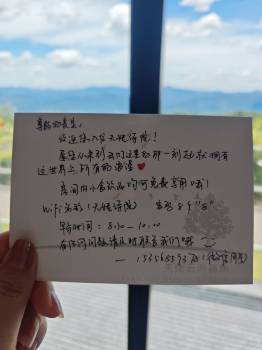 亲爱的贵宾：
欢迎您入住天健语院！
愿您从来到我们这里的那一刻起就拥有
这世界上所有的浪漫❤
房间内小食饮品均可免费享用哦！
WiFi名称（天健语院） 密码8个"8"
早餐时间：8:00-10:00
有任何问题请及时联系我们哦